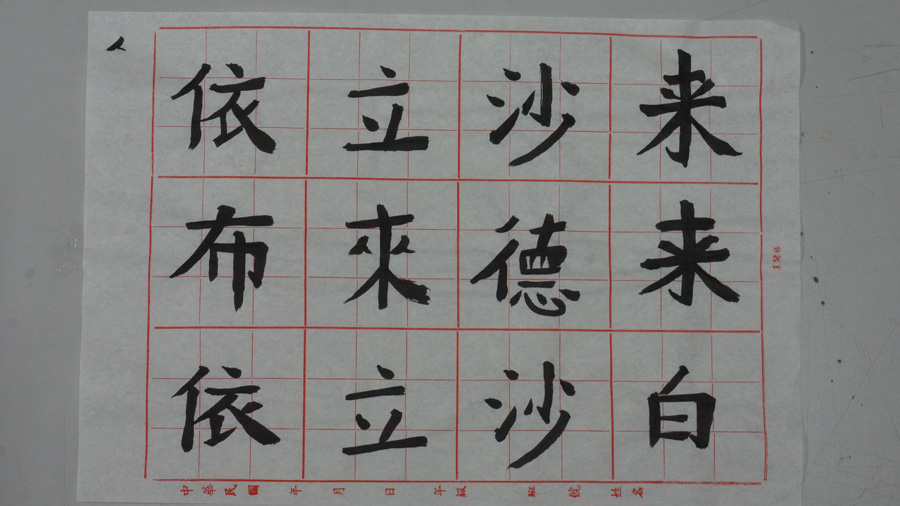 来来白
沙德沙
立來立
依布依
中華民國 年 月 日 年級 班 號 姓名